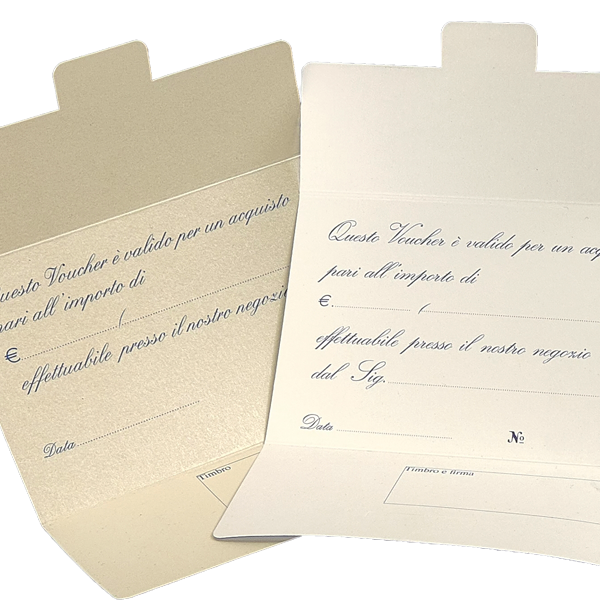 uesto Voucher è valido per un acquisto
pari all'importo di
€ (
effettuabile presso il nostro negozio
Data
Timbro
Questo Voucher è valido per un acq
pari all'importo di
€. (
effettuabile presso il nostro negozio
dal Sig.
Data Nº
Timbro e firma